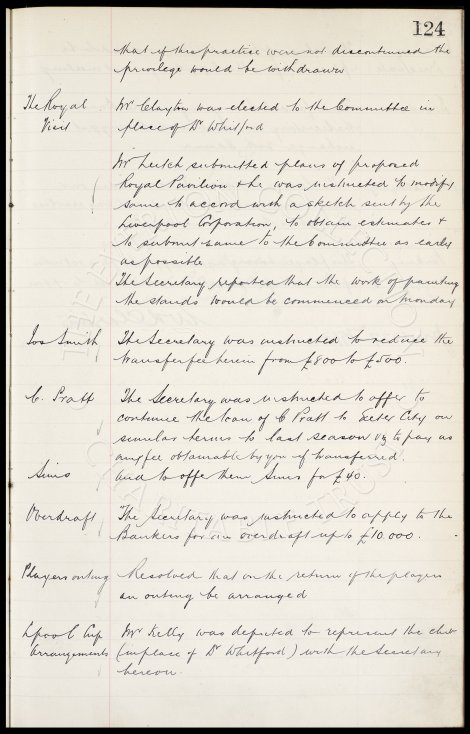 124
that if this practice were not discontinued the
privilege would be withdrawn
The Royal Visit
Mr Clayton was elected to the Committee in
place of Dr Whitford
Mr Leitch submitted plans of proposed
Royal Pavilion & he was instructed to modify
same to accord with a sketch sent by the
Liverpool Corporation, to obtain estimates &
to submit same to the Committee as early
as possible
The Secretary reported that the work of painting
the stands would be commenced on Monday
Jos Smith
The Secretary was instructed to reduce the
transfer fee herein from £800 to £500.
C. Pratt
The Secretary was instructed to offer to
continue the loan of C Pratt to Exeter City on
similar terms to last season viz to pay us
any fee obtainable by you if transferred
Sims
and to offer them Sims for £40.
Overdraft
The Secretary was instructed to apply to the
Bankers for an overdraft up to £10.000.
Players outing
Resolved that on the return of the players
an outing be arranged
Lpool Cup
Arrangements
Mr Kelly was deputed to represent the club
(in place of Dr Whitford) with the Secretary
hereon.